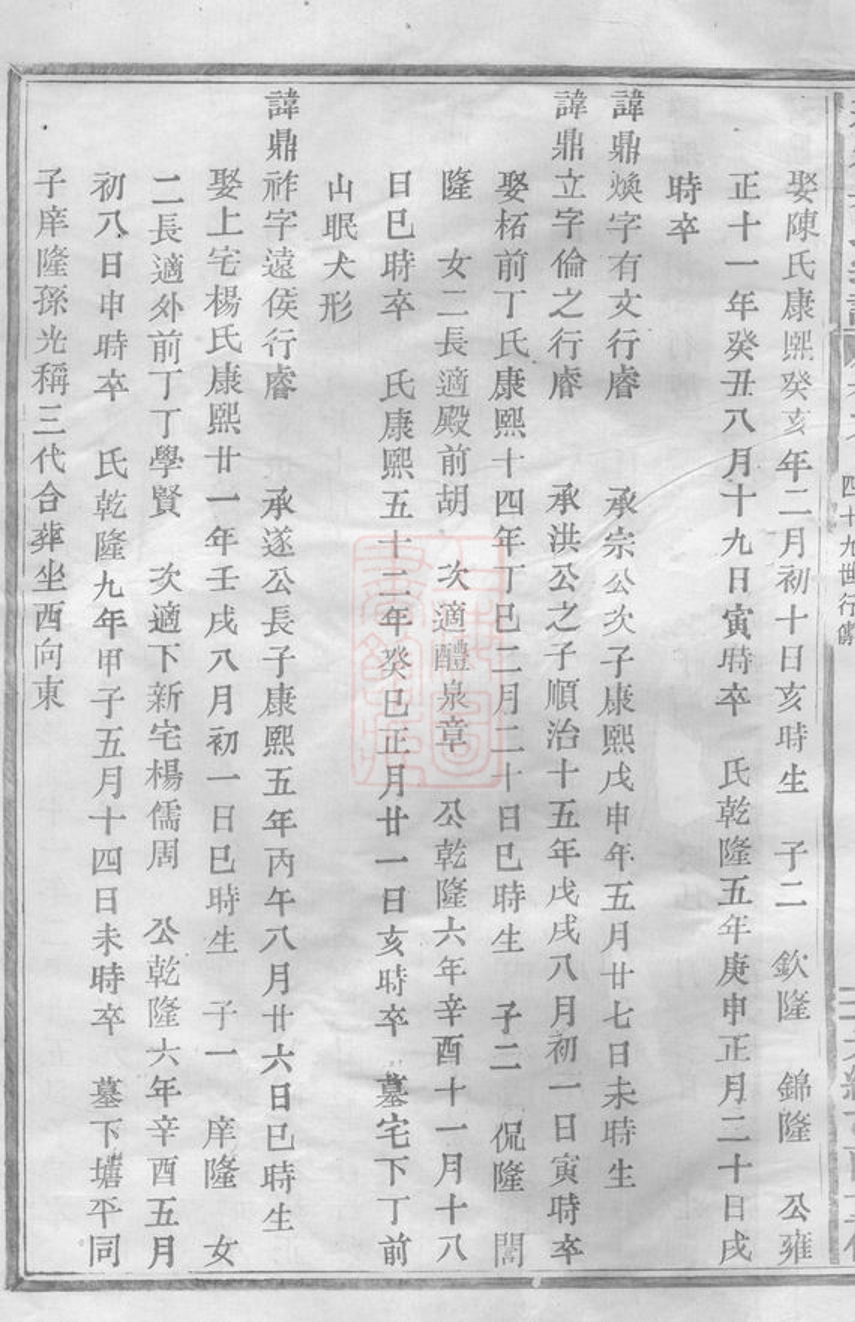 四十九世行傳
娶陳氏康熙癸亥年二月初十日亥時生 子二 欽隆 錦隆 公雍
正十一年癸丑八月十九日寅時卒 氏乾隆五年庚申正月二十日戌
時卒
諱鼎煥字有文行睿 承宗公次子康熙戊申年五月廿七日未時生
諱鼎立字倫之行睿 承洪公之子順治十五年戊戌八月初一日寅時卒
娶柘前丁氏康熙十四年丁巳二月二十日巳時生 子二 侃隆 誾
隆 女二長適殿前胡 次適醴泉章 公乾隆六年辛酉十一月十八
日巳時卒 氏康熙五十二年癸巳正月廿一日亥時卒 墓宅下丁前
山眠犬形
諱鼎祚字遠侯行睿 承遂公長子康熙五年丙午八月廿六日巳時生
娶上宅楊氏康熙廿一年壬戌八月初一日巳時生 子一 庠隆 女
二長適外前丁丁學賢 次適下新宅楊儒周 公乾隆六年辛酉五月
初八日申時卒 氏乾隆九年甲子五月十四日未時卒 墓下墻平同
子庠隆孫光稱三代合葬坐西向東